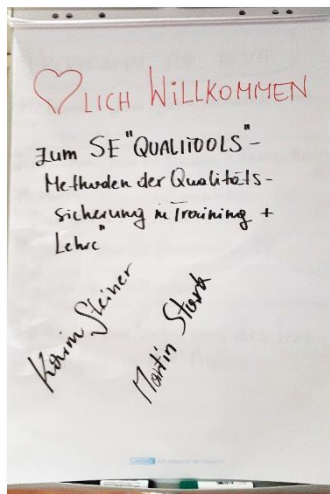 ♡LICH WILLKOMMEN
zum SE "QUALITOOLS"-
Methoden der Qualitäts-
sicherung in Training +
Lehre"
Karin Steiner
Martin Stark